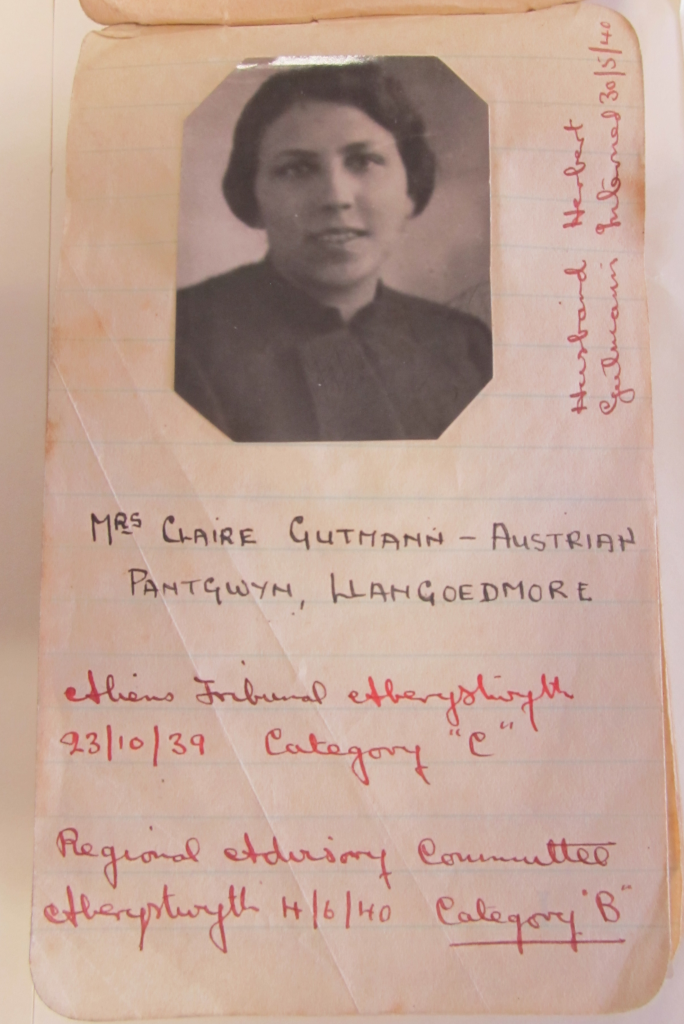 Husband Herbert
Gutmann Interned 30/5/40
MRS CLAIRE GUTMANN – AUSTRIAN
PANTGWYN, LLANGOEDMORE
Aliens Tribunal Aberystwyth
23/10/39 Category "C"
Regional Advisory Committee
Aberystwyth 4/6/40 Category "B"